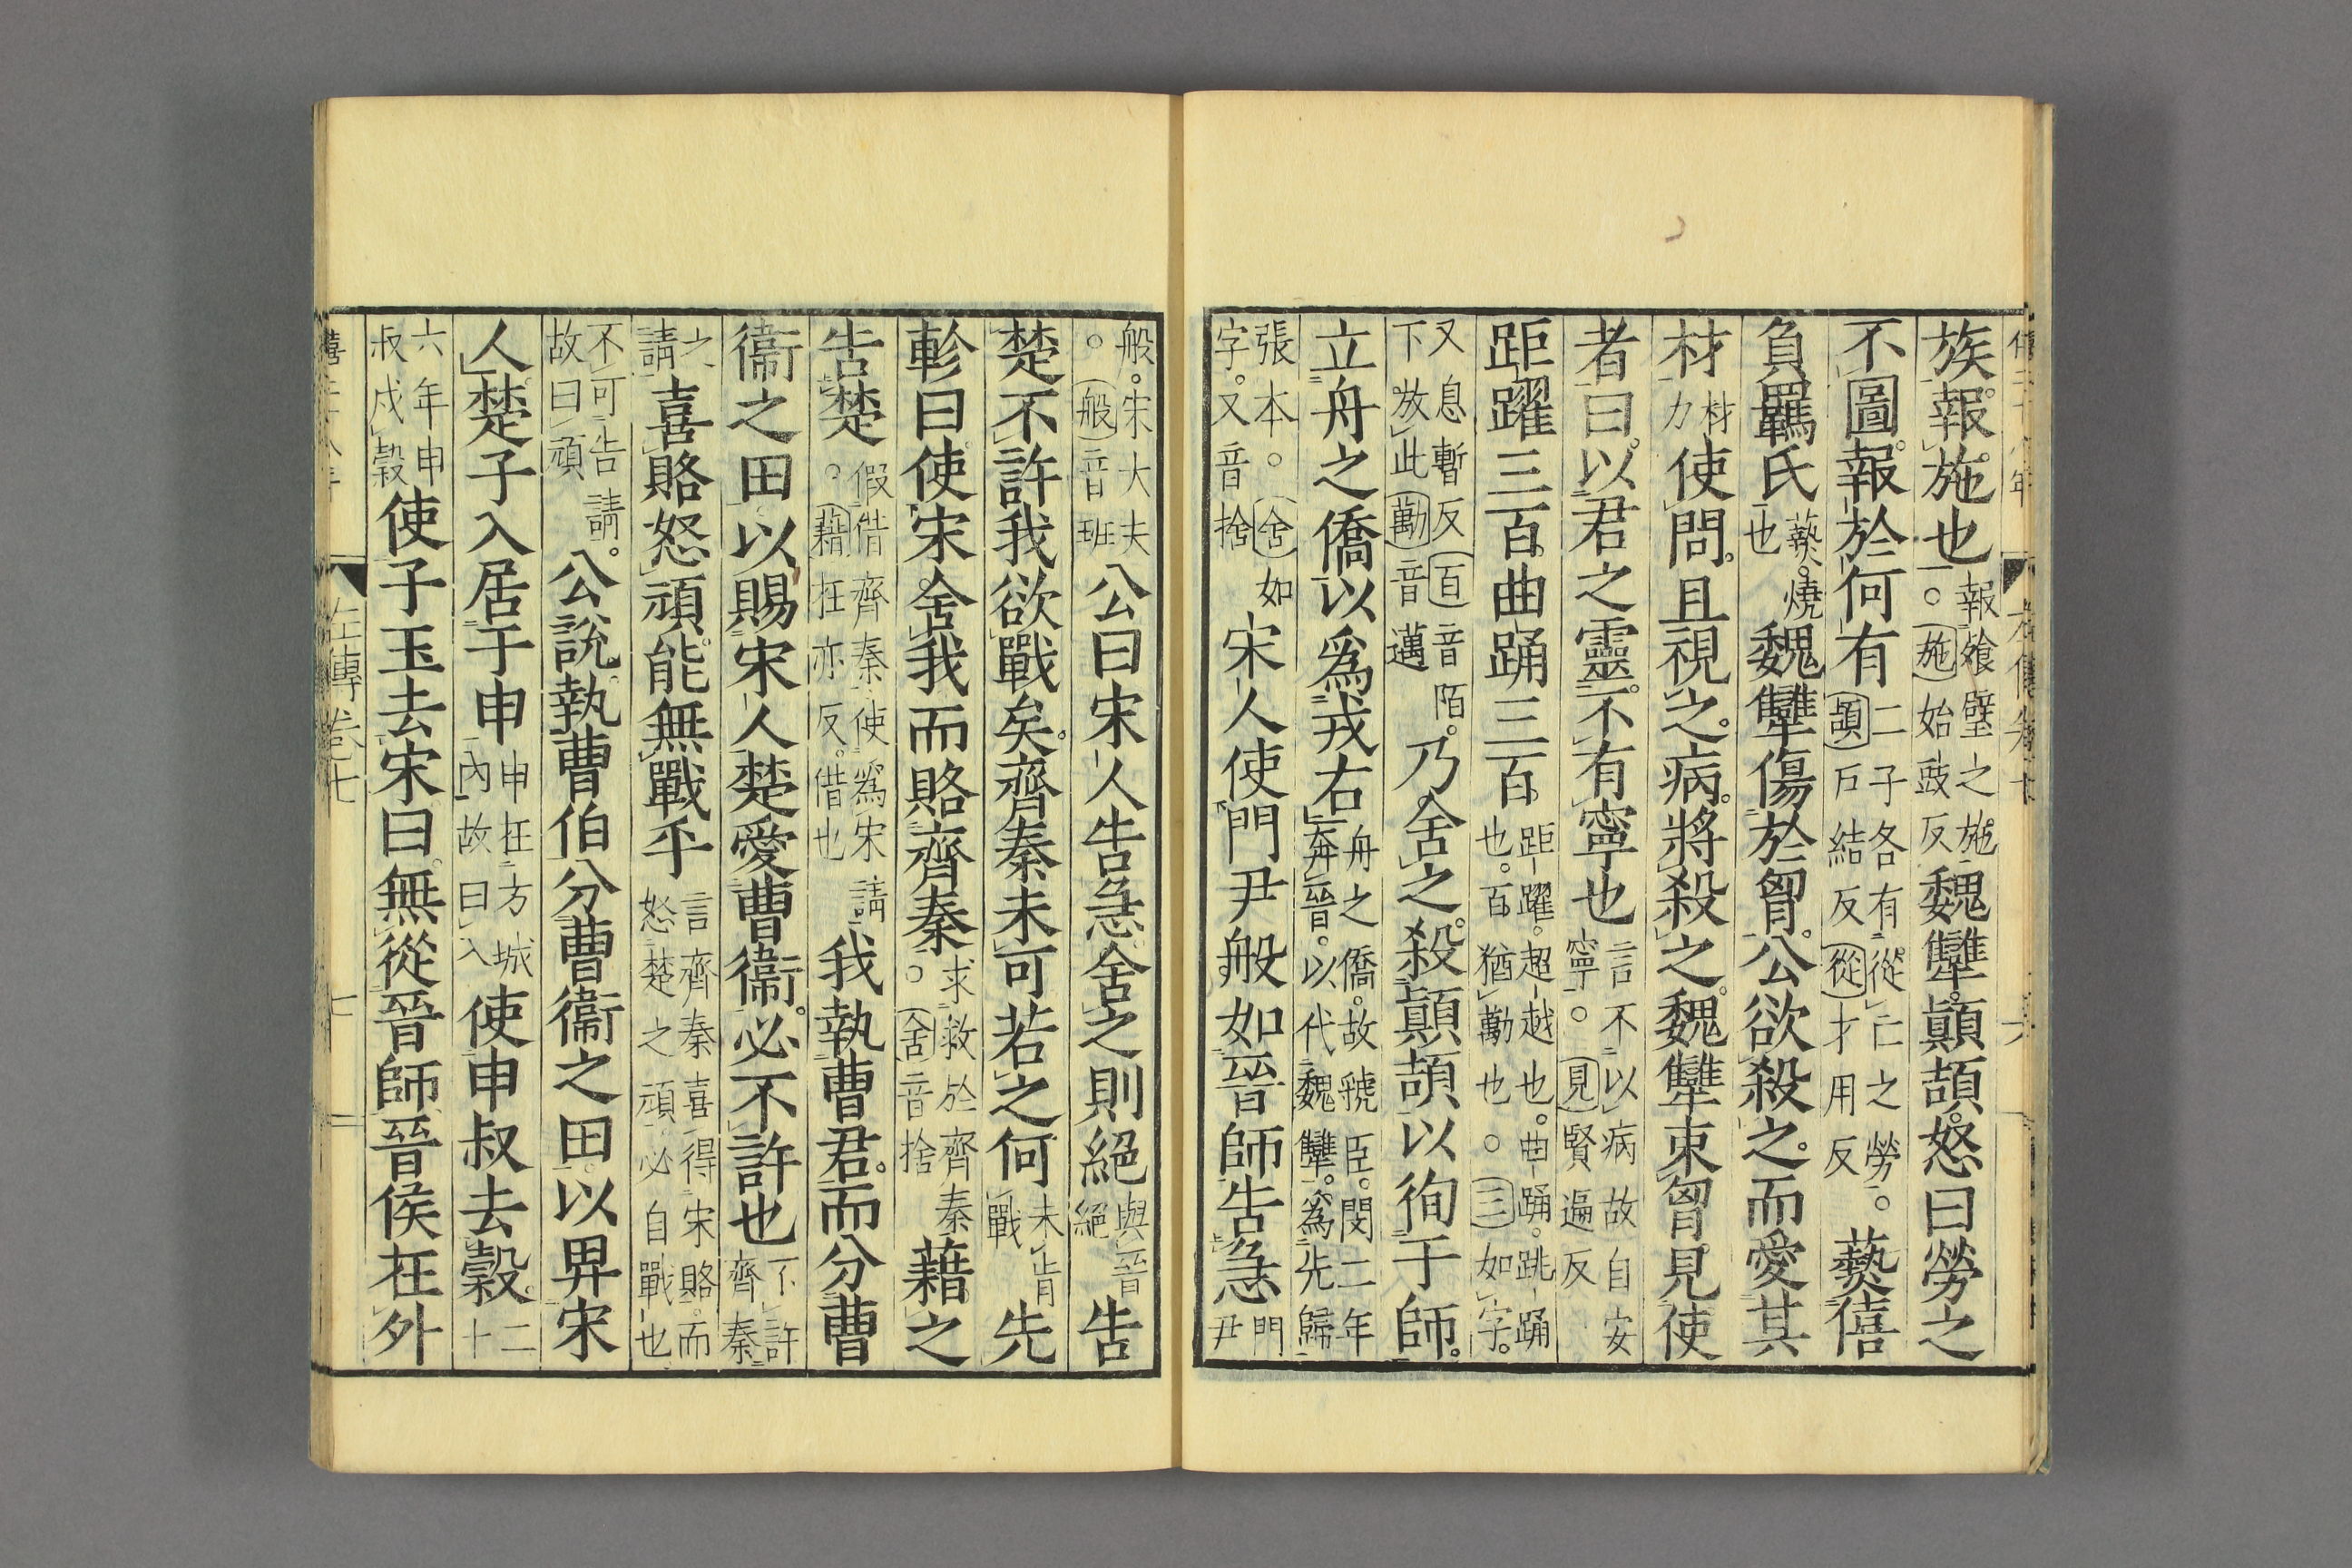 族。報施也報飧璧之施。○施始豉反魏犨。顚頡。怒曰勞之
不圖。報於何有二子各有從亡之勞。○頡戸結反從才用反爇僖
負羈氏爇。燒也魏犨傷於胷。公欲殺之。而愛其
材材力使問。且視之。病。將殺之。魏犨束胷。見使
者曰。以君之靈。不有寧也言不以病故自安寧。○見賢遍反
距躍三百。曲踊三百。距躍。超越也。曲踊。跳踊也。百猶勱也。○三如字。
又息暫反百音陌。下放此勱音邁乃舍之。殺顚頡以徇于師。
立舟之僑以爲戎右舟之僑。故虢臣。閔二年奔晉。以代魏犨。爲先歸
張本。○舍如字。又音捨宋人使門尹般如晉師告急門尹
般。宋大夫。○般音班公曰宋人告急舍之則絕與晉絕告
楚不許我欲戰矣。齊秦未可若之何未肯戰先
軫曰。使宋舍我而賂齊秦求救於齊秦。○舍音捨藉之
告楚假借齊秦。使爲宋請。○藉在亦反。借也我執曹君。而分曹
衞之田以賜宋人楚愛曹衞。必不許也不許齊秦
之請喜賂怒頑。能無戰乎言齊秦喜得宋賂。而怒楚之頑必自戰也。
不可告請。故曰頑公說。執曹伯分曹衞之田。以畀宋
人。楚子入居于申申在方城內故曰入使申叔去穀。二十
六年申叔戍穀使子玉去宋曰。無從晉師晉侯在外
左傳卷七